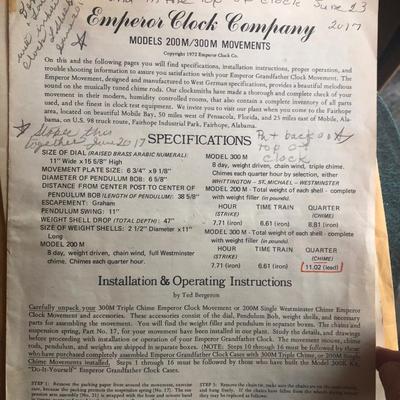 in the top of clock June 23
2017
Emperor Clock Company
MODELS 200M/300M MOVEMENTS
Copyright 1972 Emperor Clock Co.
On this and the following pages you will find specifications, installation instructions, proper operation, and
trouble shooting information to assure you satisfaction with your Emperor Grandfather Clock Movement. The
Emperor Movement, designed and manufactured to West German specifications, provides a beautiful melodious
sound on the musically tuned chime rods. Our clocksmiths have made a thorough and complete check of your
movement in their modern, humidity controlled rooms, that also contain a complete inventory of all parts
used, and the finest in clock test equipment. We invite you to visit our plant when you come to the Fairhope
area, located on beautiful Mobile Bay, 50 miles west of Pensacola, Florida, and 25 miles east of Mobile, Ala-
bama, on U.S. 98 truck route, Fairhope Industrial Park, Fairhope, Alabama.
together June 2017
Put back on
top of
clock
SPECIFICATIONS
SIZE OF DIAL (RAISED BRASS ARABIC NUMERAL):
11" Wide x 15 5/8" High
MOVEMENT PLATE SIZE: 6 3/4" x 9 1/8"
DIAMETER OF PENDULUM BOB: 6 5/8"
DISTANCE FROM CENTER POST TO CENTER OF
PENDULUM BOB (LENGTH OF PENDULUM): 38 5/8"
ESCAPEMENT: Graham
PENDULUM SWING: 11"
WEIGHT SHELL DROP (TOTAL DEPTH): 47"
SIZE OF WEIGHT SHELLS: 2 1/2" Diameter x 11"
Long
MODEL 200 M
8 day, weight driven, chain wind, full Westminster
chime. Chimes each quarter hour.
MODEL 300 M
8 day, weight driven, chain wind, triple chime.
Chimes each quarter hour by selection, either
WHITTINGTON - ST. MICHAEL - WESTMINSTER
MODEL 200 M - Total weight of each shell - complete
with weight filler (in pounds).
HOUR TIME TRAIN QUARTER
(STRIKE) (CHIME)
7.71 (iron) 6.61 (iron) 8.81 (iron)
MODEL 300 M - Total weight of each shell - complete
with weight filler (in pounds).
HOUR TIME TRAIN QUARTER
(STRIKE) (CHIME)
7.71 (iron) 6.61 (iron) 11.02 (lead)
Installation & Operating Instructions
by Ted Bergeron
Carefully unpack your 300M Triple Chime Emperor Clock Movement or 200M Single Westminster Chime Emperor
Clock Movement and accessories. These accessories consist of the dial, Pendulum Bob, weight shells, and necessary
parts for assembling the movement. You will find the weight filler and pendulum in separate boxes. The chains and
suspension spring, Part No. 17, for your movement been installed in our plant. Study the details, and drawings
before proceeding with installation or operation of your Emperor Grandfather Clock. The movement mount, chime
rods, pendulum, and weights are shipped in separate boxes. (NOTE: Steps 10 through 16 must be followed by those
who have purchased completely assembled Emperor Grandfather Clock Cases with 300M Triple Chime, or 200M Single
Chime Movements installed. Steps 1 through 16 must be followed by those who have built the Model 300K
"Do-It-Yourself" Emperor Grandfather Clock Cases.